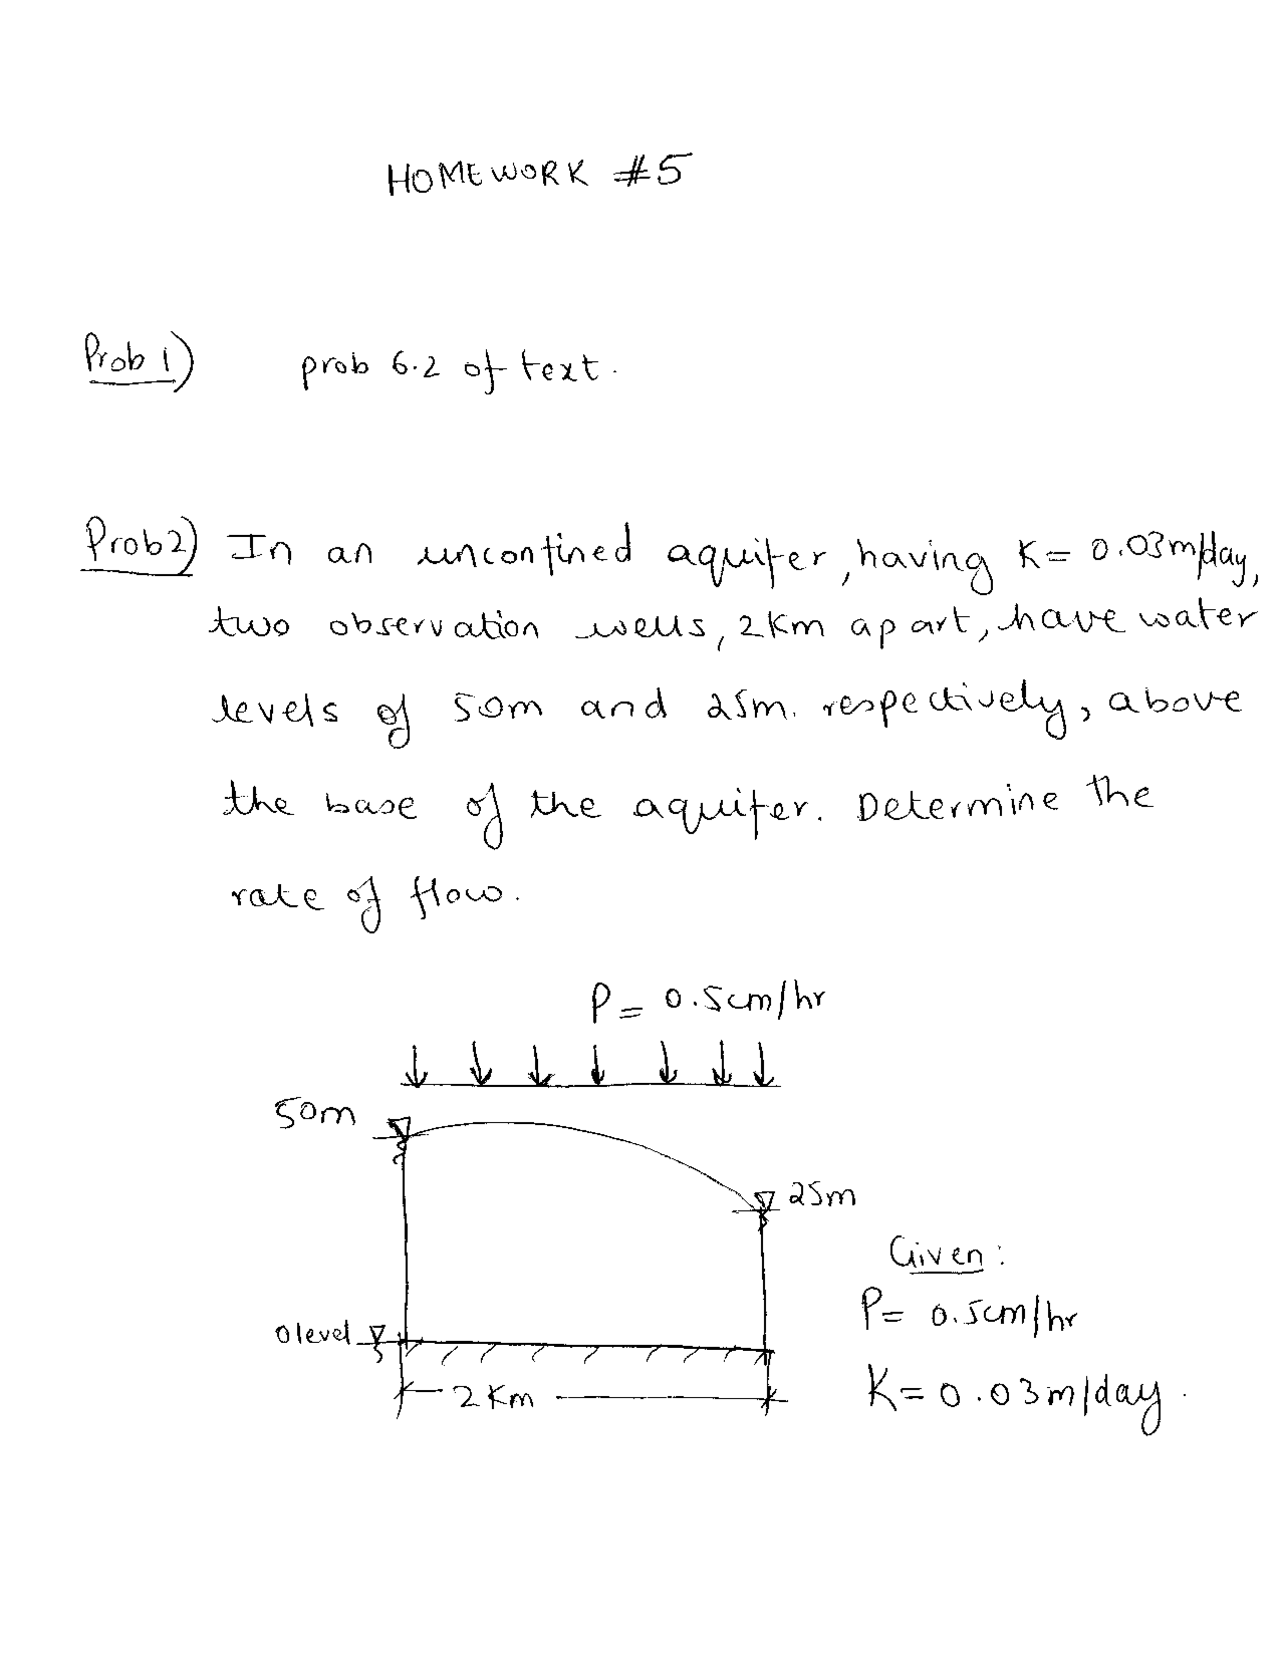 HOMEWORK #5
Prob 1) prob 6.2 of text.
Prob2) In an unconfined aquifer, having K= 0.03m/day,
two observation wells, 2Km apart, have water
levels of 50m and 25m. respectively, above
the base of the aquifer. Determine the
rate of flow.
P= 0.5cm/hr
50m
25m
Given:
P= 0.5cm/hr
0 level
2 Km
K=0.03m/day.